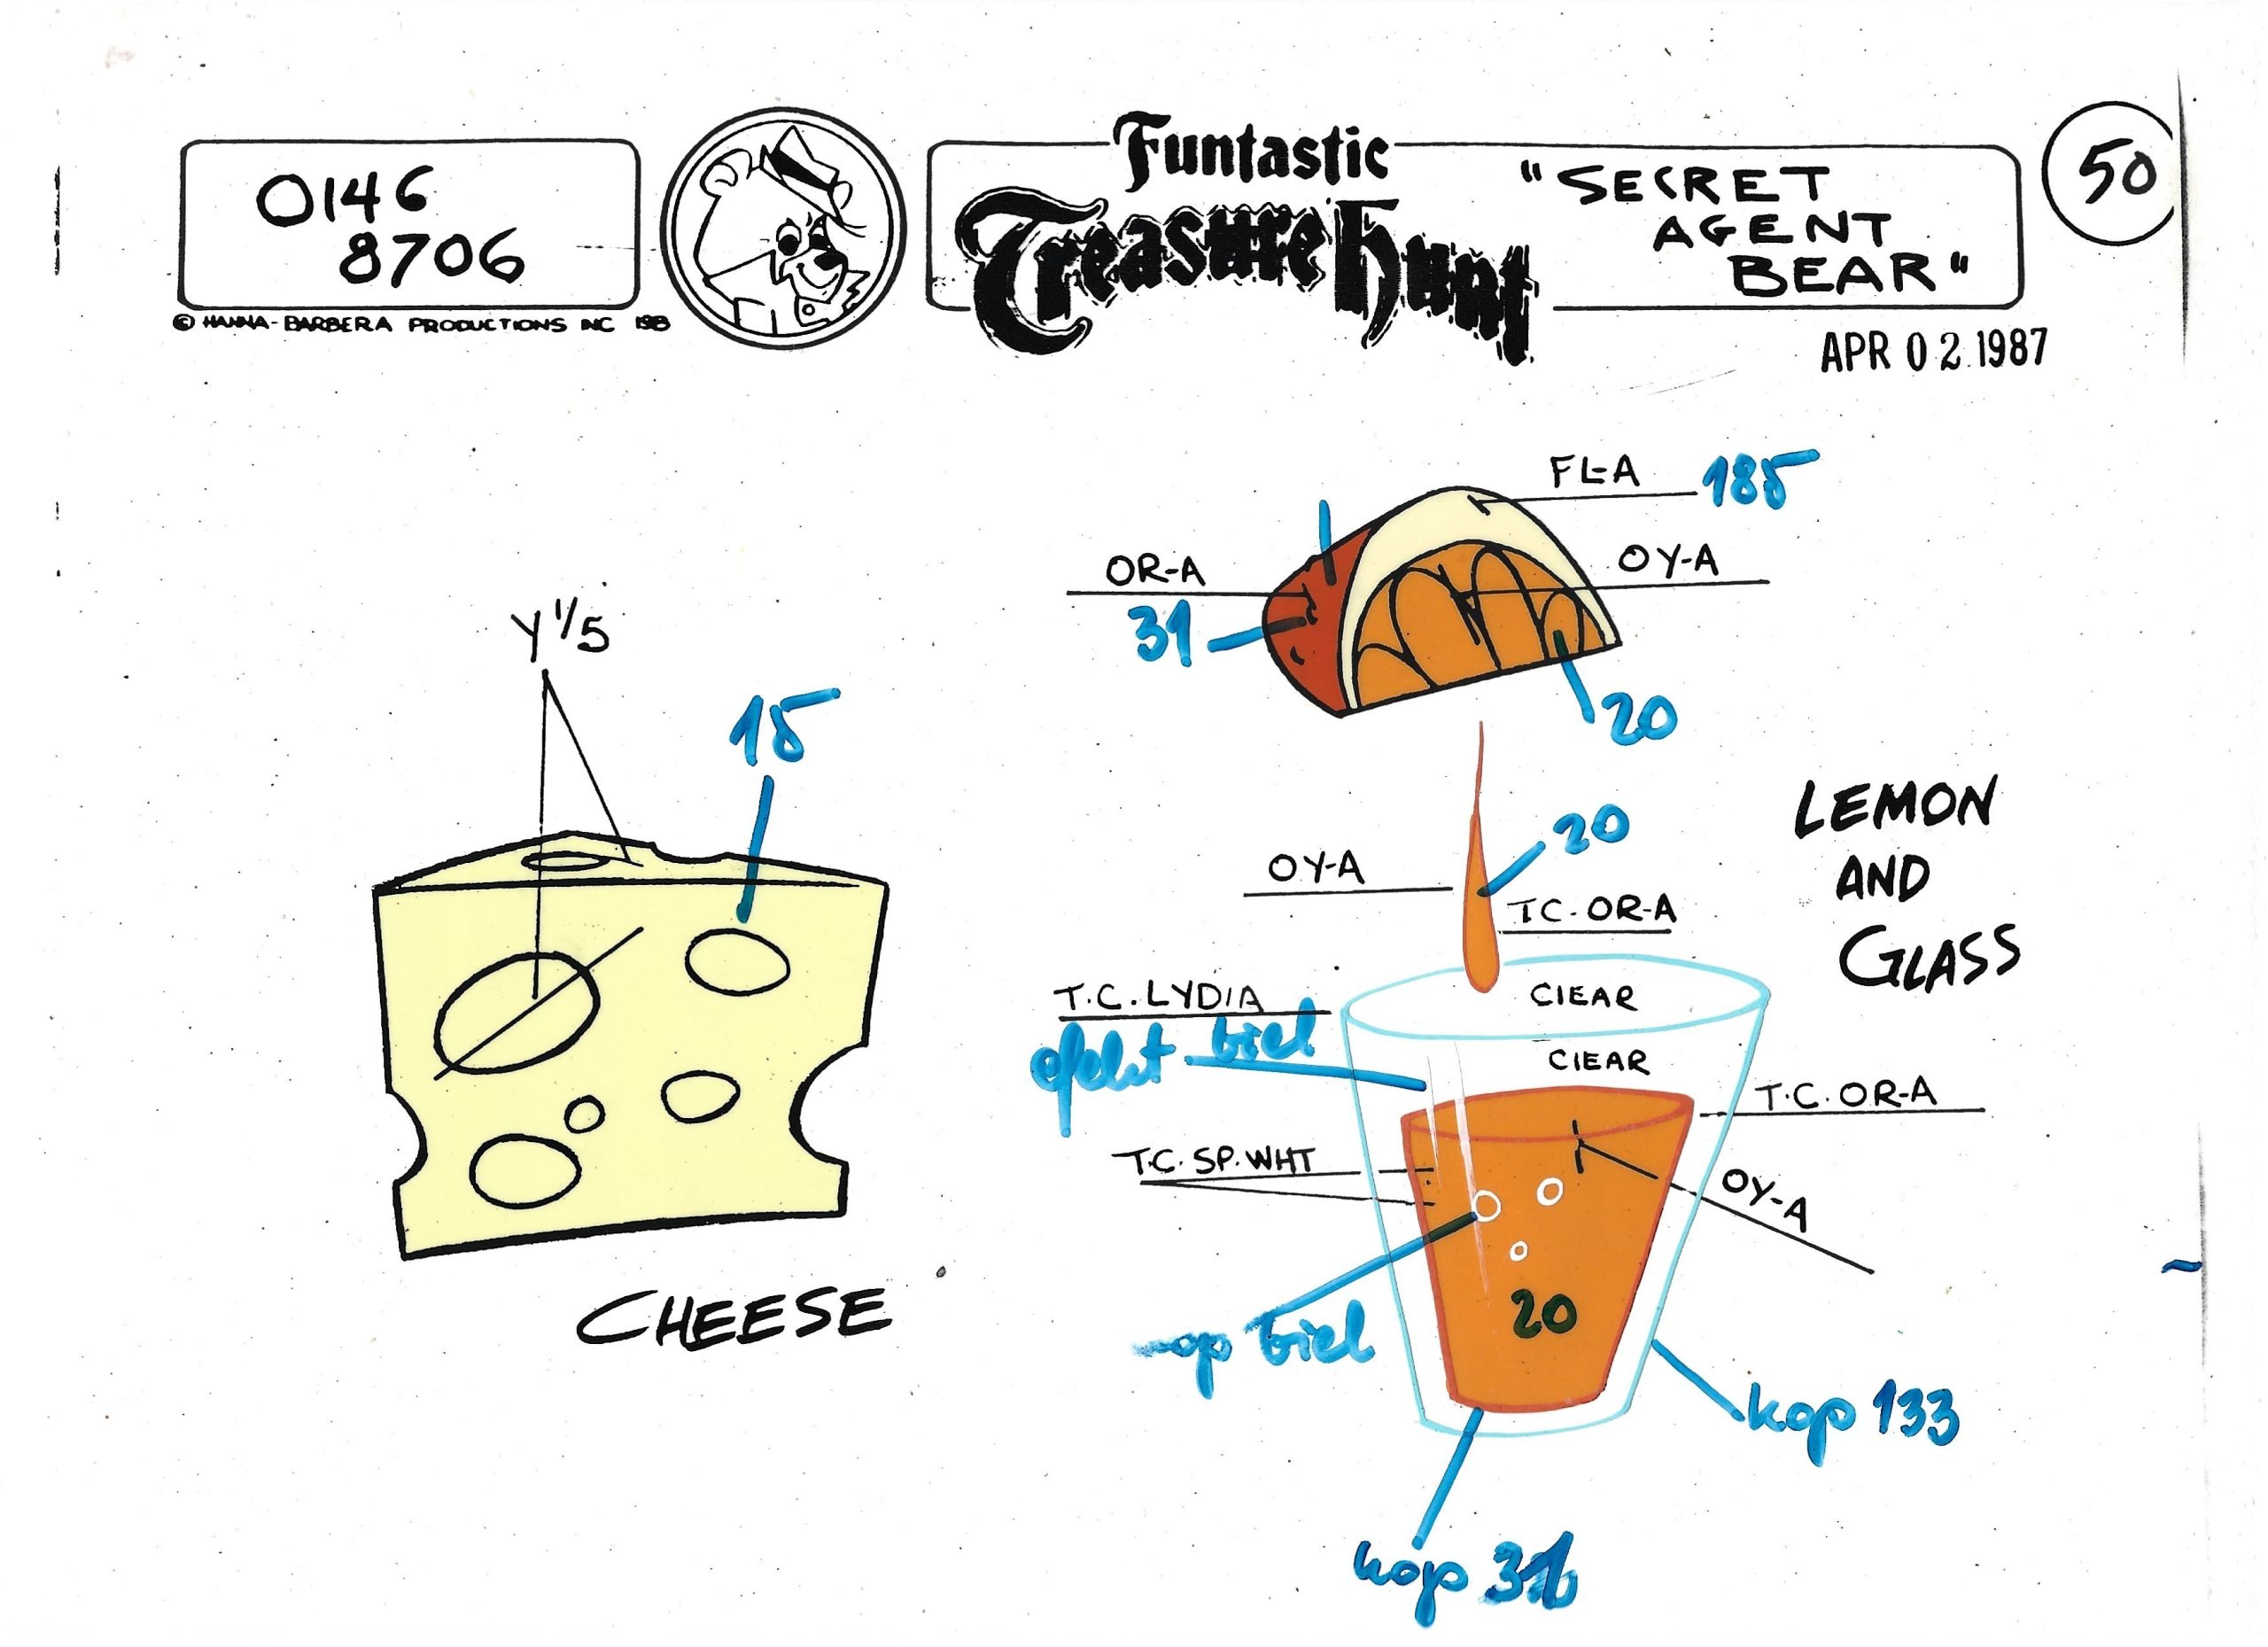 0146
8706
© HANNA-BARBERA PRODUCTIONS INC
Funtastic
Treasure Hunt
"SECRET
AGENT
BEAR"
50
APR 02 1987
FL-A 185
OR-A
OY-A
31
20
Y 1/5
15
20
OY-A
TC-OR-A
LEMON
AND
GLASS
T.C. LYDIA
CLEAR
efekt biel
CLEAR
T.C. OR-A
T.C. SP. WHT
OY-A
20
CHEESE
kop biel
kop 133
kop